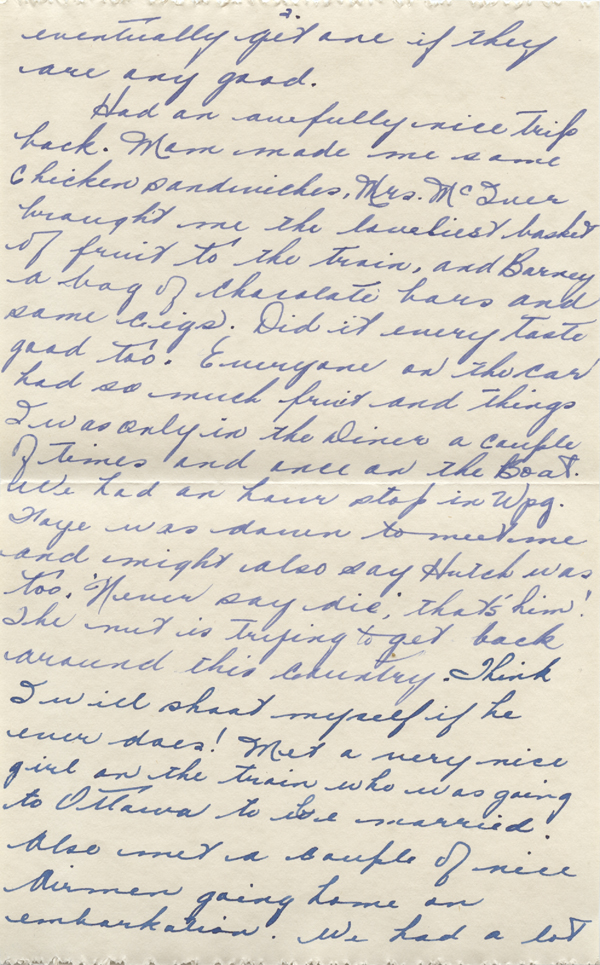 2.
eventually get one if they
are any good.
Had an awfully nice trip
back. Mom made me some
chicken sandwiches, Mrs. McIver
brought me the loveliest basket
of fruit to the train, and Barney
a bag of chocolate bars and
some cigs. Did it every taste
good too. Everyone on the car
had so much fruit and things
I was only in the Diner a couple
of times and once on the Boat.
We had an hour stop in Wpg.
Faye was down to meet me
and might also say Hutch was
too. 'Never say die,' that's him!
The nut is trying to get back
around this country. Think
I will shoot myself if he
ever does! Met a very nice
girl on the train who was going
to Ottawa to be married.
Also met a couple of nice
Airmen going home on
embarkation. We had a lot